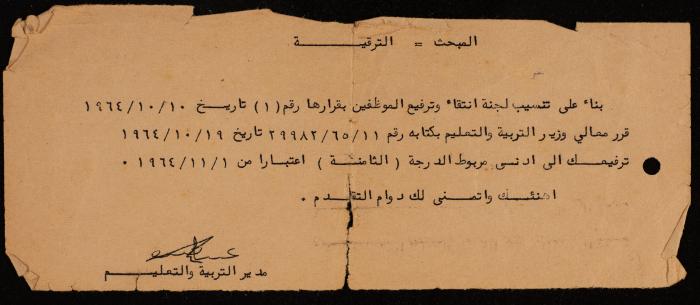 المبحث = الترقيـــــة
بناء على تنسيب لجنة انتقاء وترفيع الموظفين بقرارها رقم (١) تاريـــخ ١٩٦٤/١٠/١٠
قرر معالي وزير التربية والتعليم بكتابه رقم ٢٩٩٨٢/٦٥/١١ تاريخ ١٩٦٤/١٠/١٩
ترفيعـك الى ادنـى مربوط الدرجة ( الثامنـــة ) اعتبارا من ١٩٦٤/١١/١ ٠
اهنئـك واتمنـى لك دوام التقدم ٠
مدير التربية والتعليـــم